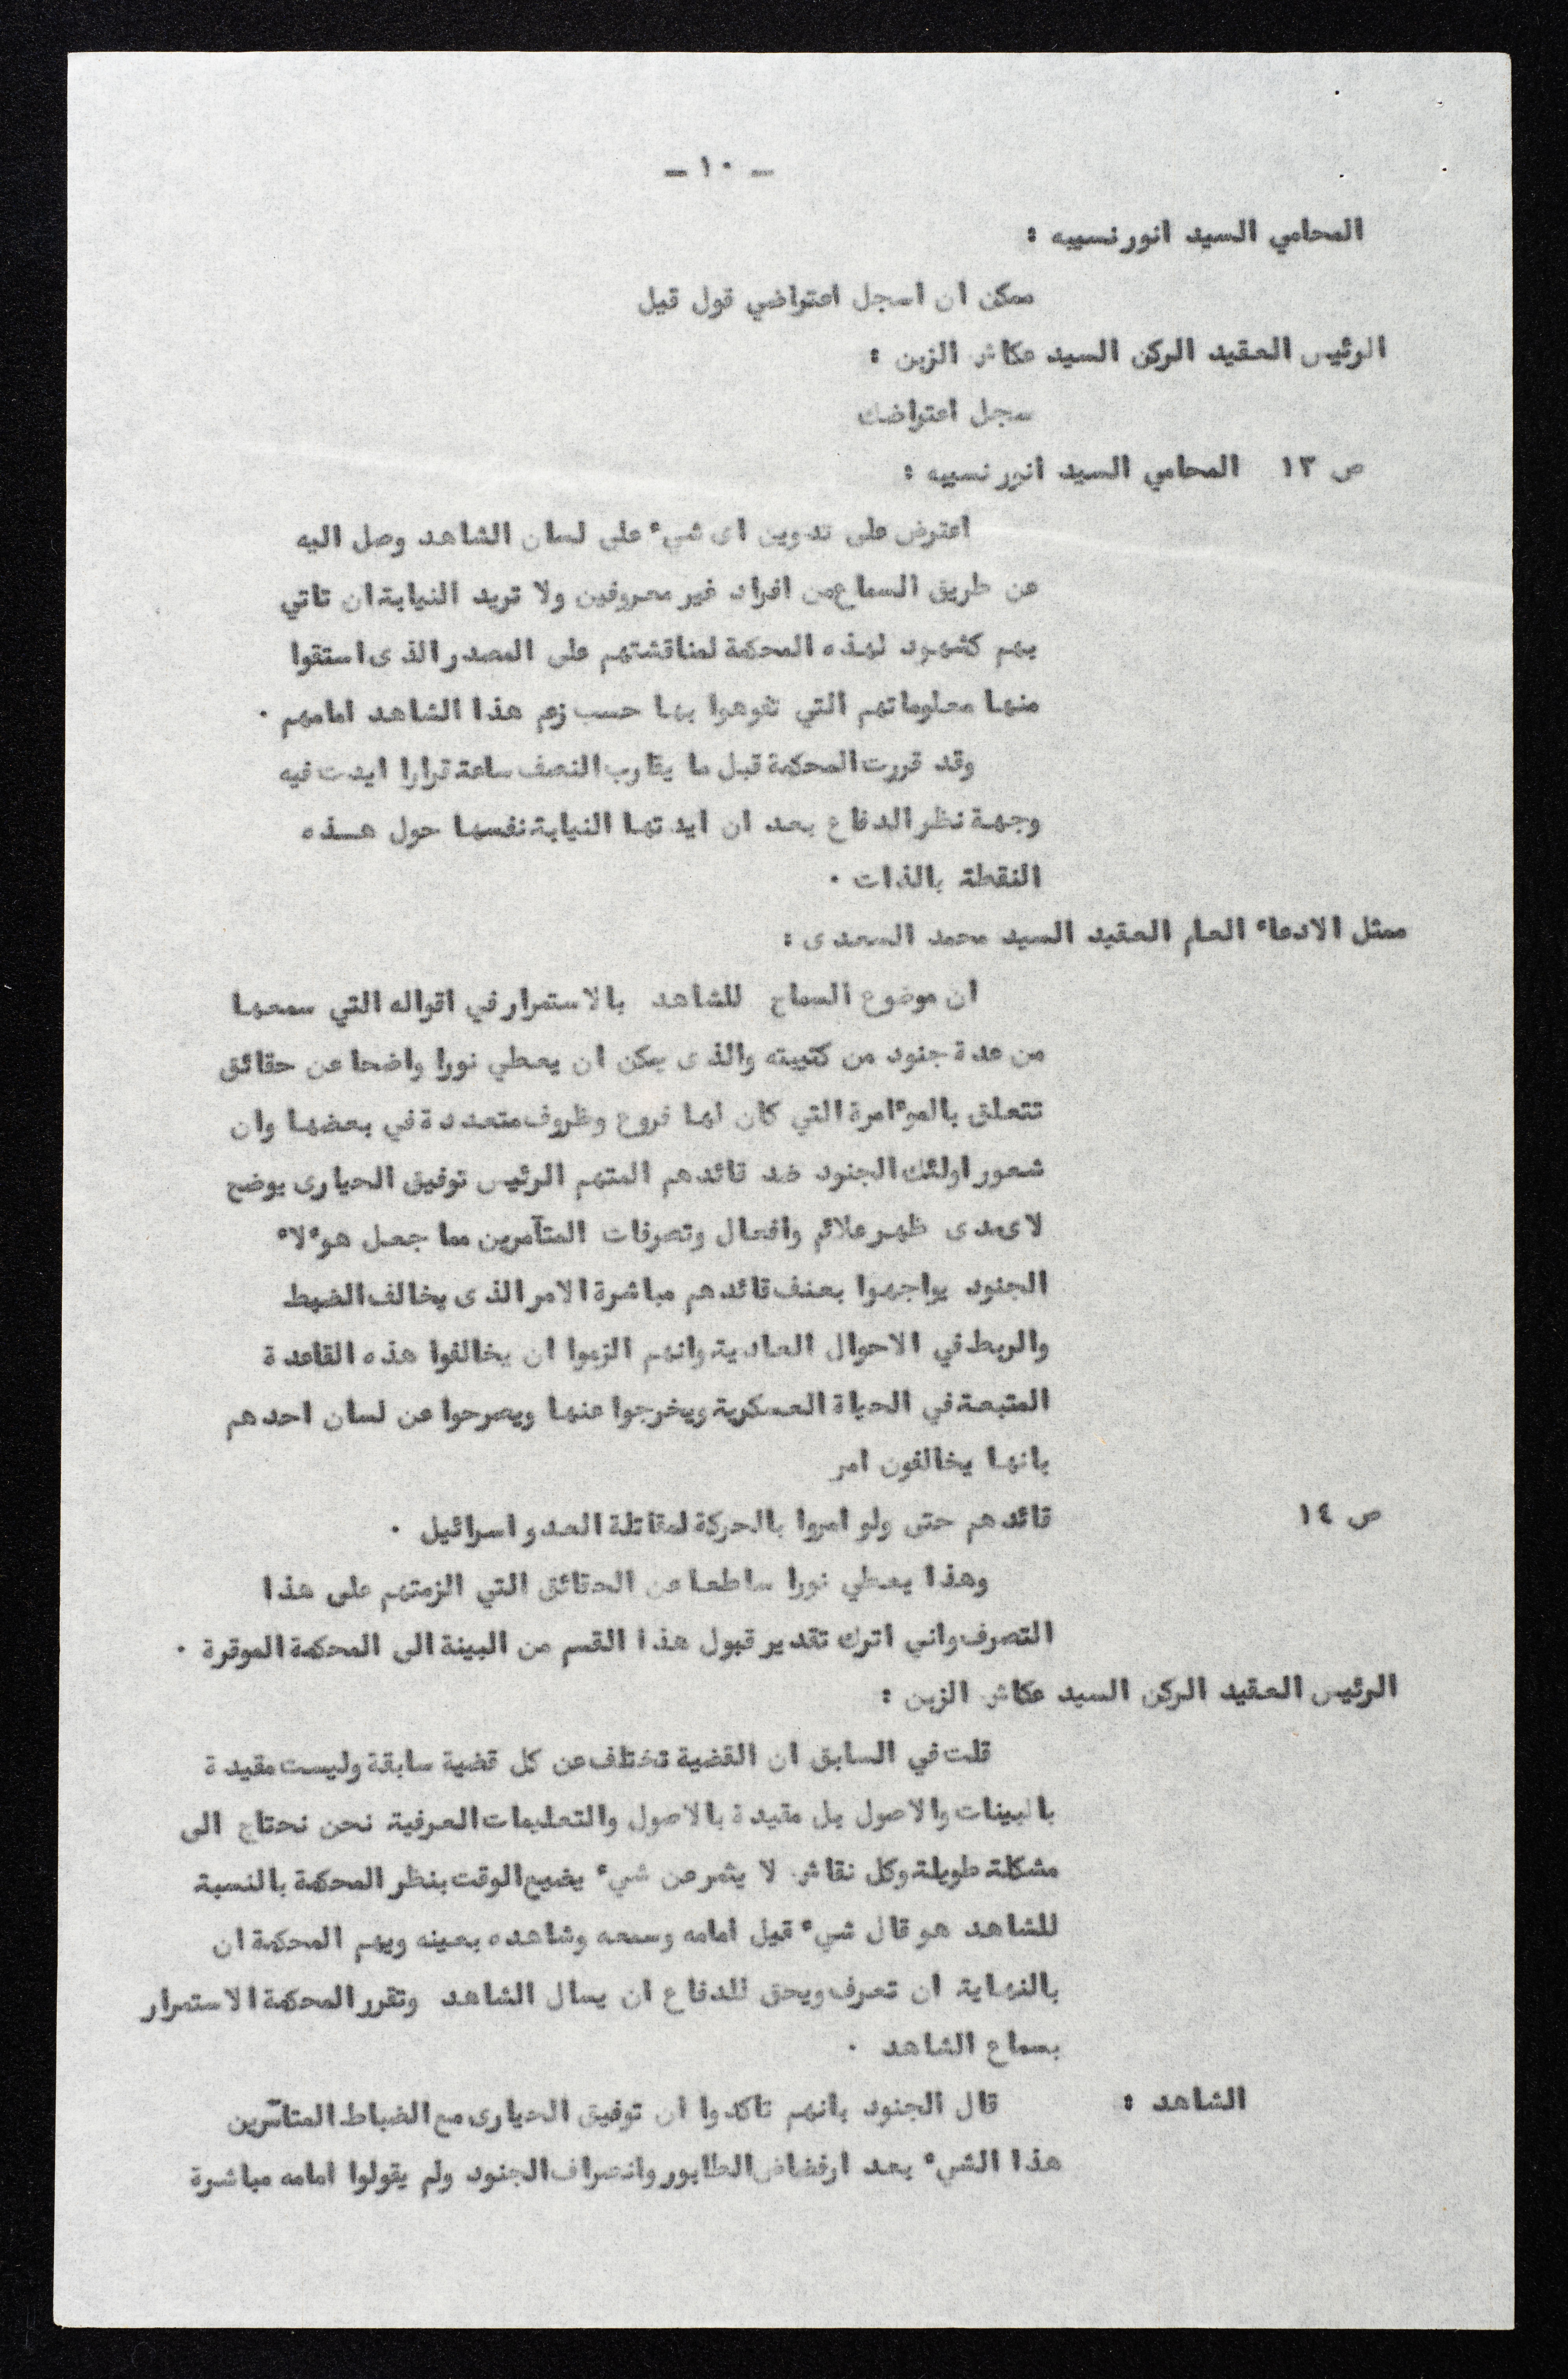 ـ ١٠ ـ
المحامي السيد انور نسيبه :
ممكن ان اسجل اعتراضي قول قيل
الرئيس العقيد الركن السيد عكاش الزبن :
سجل اعتراضك
ص ١٣ المحامي السيد انور نسيبه :
اعترض على تدوين اى شيء على لسان الشاهد وصل اليه
عن طريق السماع من افراد غير معروفين ولا تريد النيابة ان تاتي
بهم كشهود لهذه المحكمة لمناقشتهم على المصدر الذى استقوا
منها معلوماتهم التي تفوهوا بها حسب زعم هذا الشاهد امامهم ٠
وقد قررت المحكمة قبل ما يقارب النصف ساعة قرارا ايدت فيه
وجهة نظر الدفاع بعد ان ايدتها النيابة نفسها حول هـذه
النقطة بالذات ٠
ممثل الادعاء العام العقيد السيد محمد السعدى :
ان موضوع السماح للشاهد بالاستمرار في اقواله التي سمعها
من عدة جنود من كتيبته والذى يمكن ان يعطي نورا واضحا عن حقائق
تتعلق بالموءامرة التي كان لها فروع وظروف متعددة في بعضها وان
شعور اولئك الجنود ضد قائدهم المتهم الرئيس توفيق الحيارى يوضح
لاى مدى ظهر علائم وافعال وتصرفات المتآمرين مما جعل هوءلاء
الجنود يواجهوا بعنف قائدهم مباشرة الامر الذى يخالف الضبط
والربط في الاحوال العادية وانهم الزموا ان يخالفوا هذه القاعدة
المتبعة في الحياة العسكرية ويخرجوا عنها ويصرحوا عن لسان احدهم
بانها يخالفون امر
ص ١٤ قائدهم حتى ولو امروا بالحركة لمقاتلة العدو اسرائيل ٠
وهذا يعطي نورا ساطعا عن الحقائق التي الزمتهم على هذا
التصرف واني اترك تقدير قبول هذا القسم من البينة الى المحكمة الموقرة ٠
الرئيس العقيد الركن السيد عكاش الزبن :
قلت في السابق ان القضية تختلف عن كل قضية سابقة وليست مقيدة
بالبينات والاصول بل مقيدة بالاصول والتعليمات العرفية نحن نحتاج الى
مشكلة طويلة وكل نقاش لا يثمر عن شيء يضيع الوقت بنظر المحكمة بالنسبة
للشاهد هو قال شيء قيل امامه وسمعه وشاهده بعينه ويهم المحكمة ان
بالنهاية ان تعرف ويحق للدفاع ان يسال الشاهد وتقرر المحكمة الاستمرار
بسماع الشاهد ٠
الشاهد : قال الجنود بانهم تاكدوا ان توفيق الحيارى مع الضباط المتآمرين
هذا الشيء بعد ارفضاض الطابور وانصراف الجنود ولم يقولوا امامه مباشرة